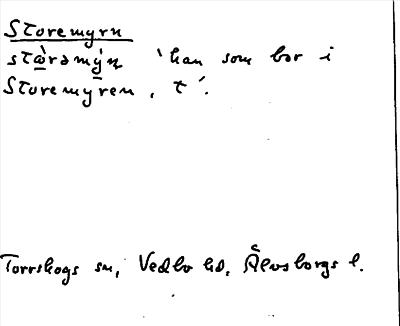 Storemyrn
stὰrəmýn 'han som bor i
Storemyren, t'.
Torrskogs sn, Vedbo hd, Älvsborgs l.